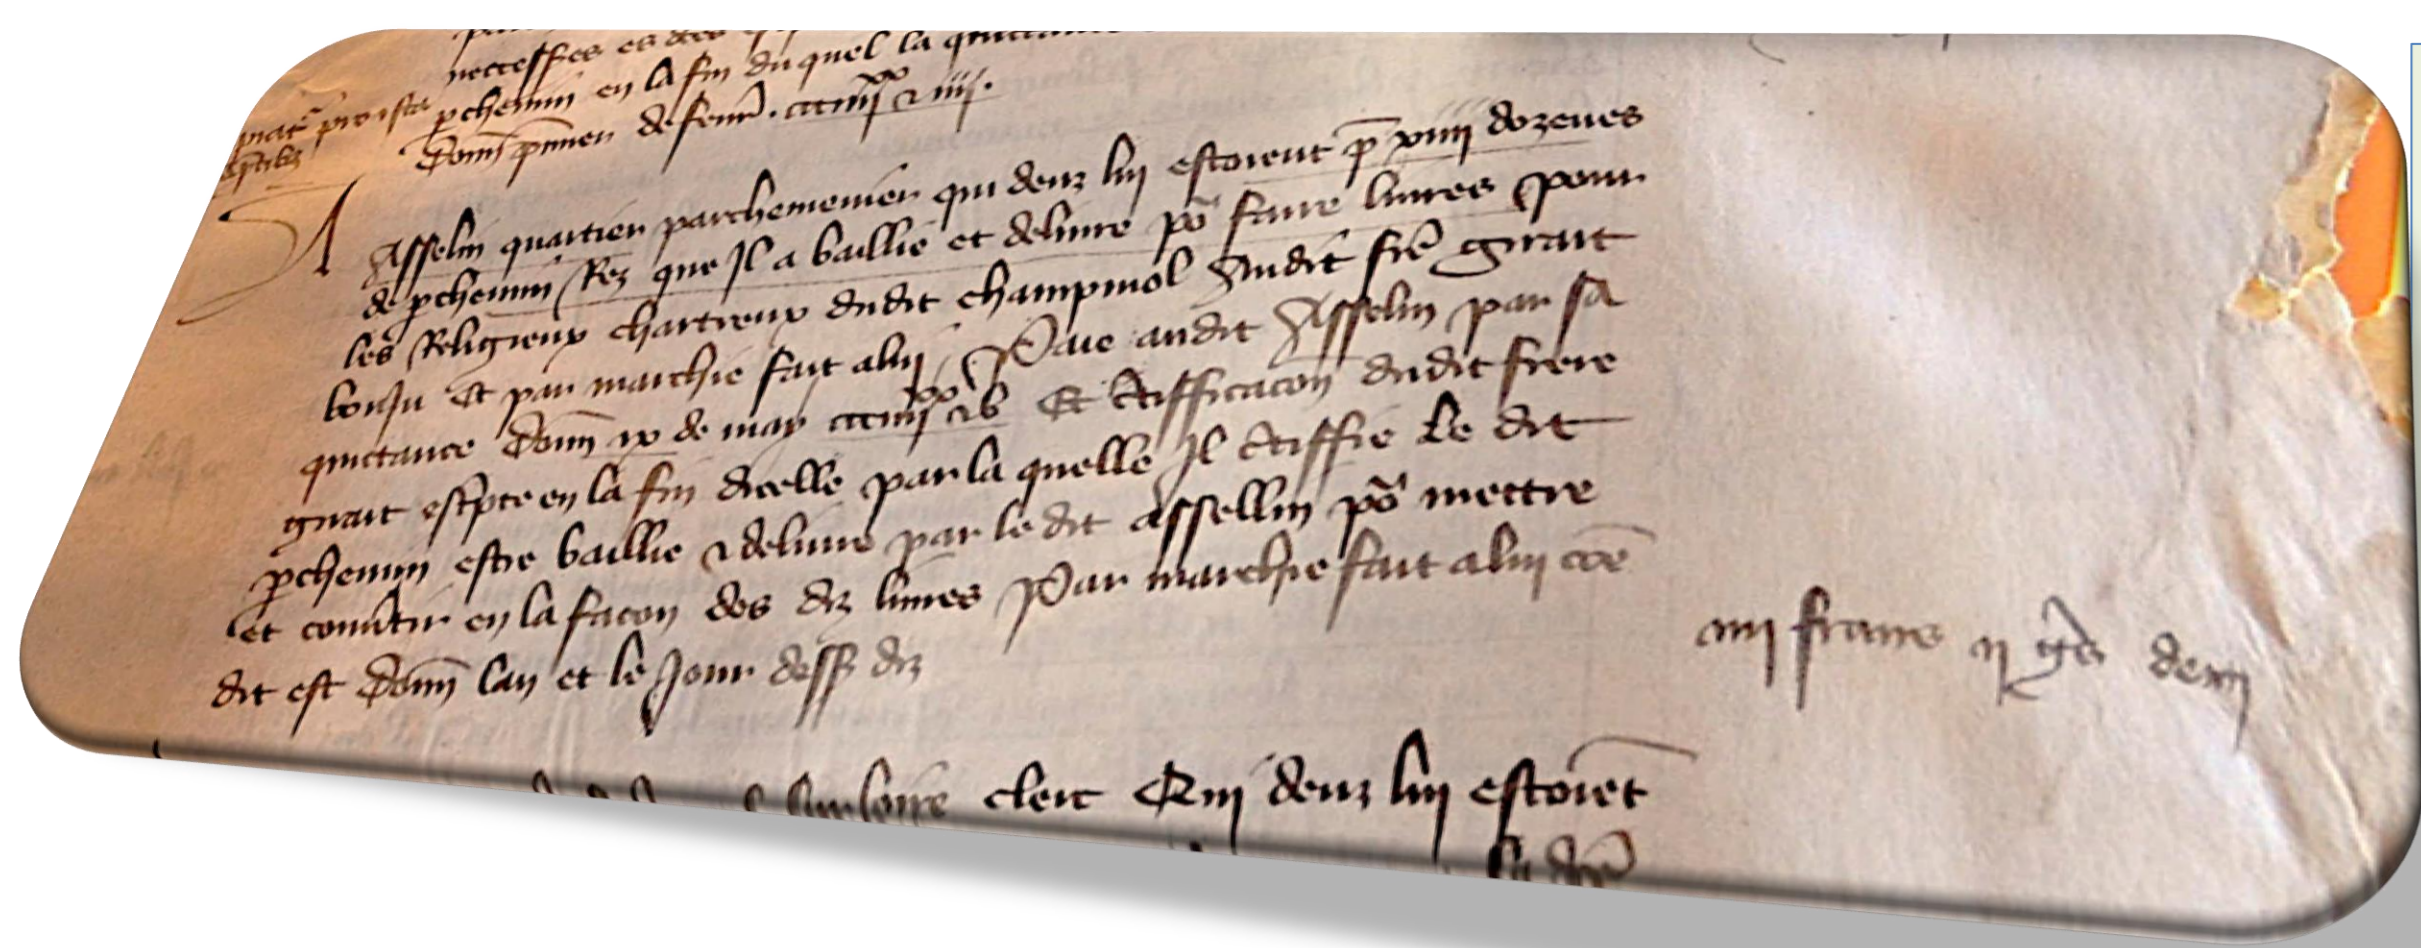 necessres es dites
pchemin en la fin du quel la quittance
Donn pmier de fevrr. ccc iiii xx & iiii.
A Asselin quartier parcheminier qui deuz lui estoient pr xiiii dozenes
de pchemin Rez que Il a baillie et delivre po faire livres pour
les Religieux chartreux dudit champmol Audit fre girart
bonju Et par marchie fait a lui Paie audit Asselin par sa
quictance Donn ix de may ccc iiii xx & v Et Certifficacon dudit frere
girart escpte en la fin dicelle par la quelle Il certiffie Le dit
pchemin estre baillie & delivre par le dit Assellin po mettre
et convtir en la facon des diz livres Par marchie fait a lui coe
dit est Donn lan et le Jour dess diz
iiii frans ii gs demi
clerc Qui deuz lui estoiet